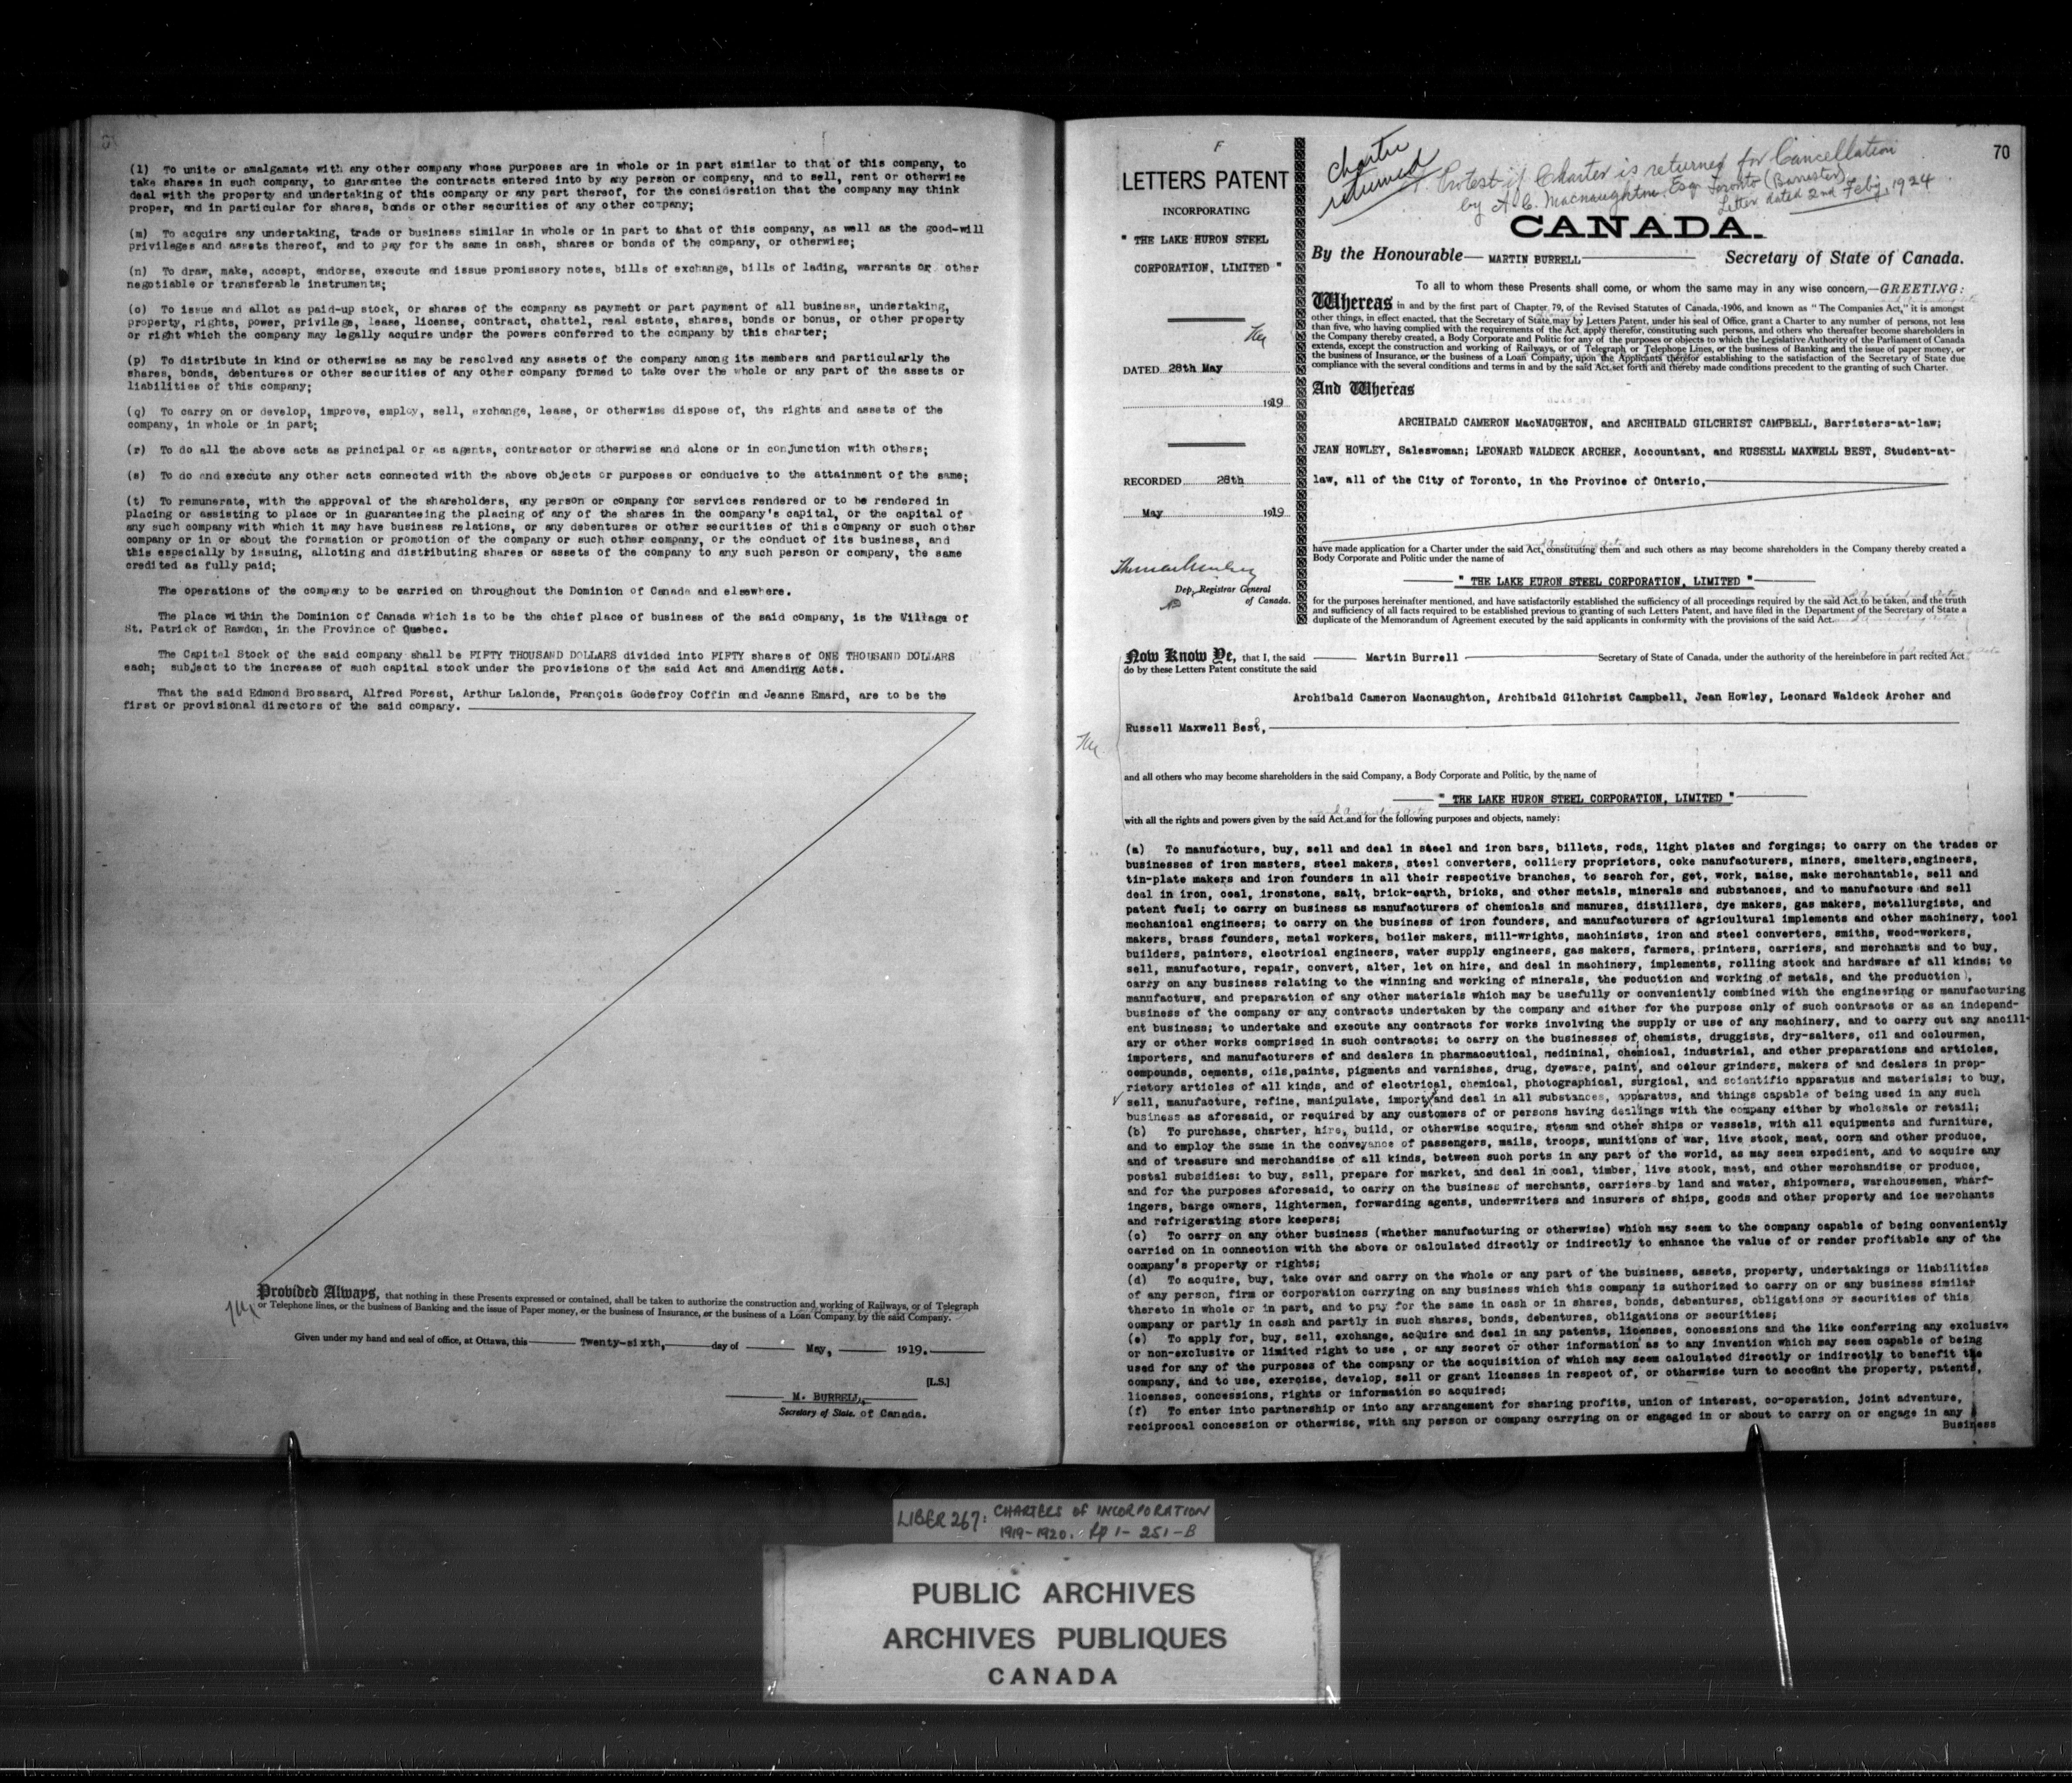 (l) To unite or amalgamate with any other company whose purposes are in whole or in part similar to that of this company, to
take shares in such company, to guarantee the contracts entered into by any person or company, and to sell, rent or otherwise
deal with the property and undertaking of this company or any part thereof, for the consideration that the company may think
proper, and in particular for shares, bonds or other securities of any other company;
(m) To acquire any undertaking, trade or business similar in whole or in part to that of this company, as well as the good-will
privileges and assets thereof, and to pay for the same in cash, shares or bonds of the company, or otherwise;
(n) To draw, make, accept, endorse, execute and issue promissory notes, bills of exchange, bills of lading, warrants or other
negotiable or transferable instruments;
(o) To issue and allot as paid-up stock, or shares of the company as payment or part payment of all business, undertaking,
property, rights, power, privilege, lease, license, contract, chattel, real estate, shares, bonds or bonus, or other property
or right which the company may legally acquire under the powers conferred to the company by this charter;
(p) To distribute in kind or otherwise as may be resolved any assets of the company among its members and particularly the
shares, bonds, debentures or other securities of any other company formed to take over the whole or any part of the assets or
liabilities of this company;
(q) To carry on or develop, improve, employ, sell, exchange, lease, or otherwise dispose of, the rights and assets of the
company, in whole or in part;
(r) To do all the above acts as principal or as agents, contractor or otherwise and alone or in conjunction with others;
(s) To do and execute any other acts connected with the above objects or purposes or conducive to the attainment of the same;
(t) To remunerate, with the approval of the shareholders, any person or company for services rendered or to be rendered in
placing or assisting to place or in guaranteeing the placing of any of the shares in the company's capital, or the capital of
any such company with which it may have business relations, or any debentures or other securities of this company or such other
company or in or about the formation or promotion of the company or such other company, or the conduct of its business, and
this especially by issuing, alloting and distributing shares or assets of the company to any such person or company, the same
credited as fully paid;
The operations of the company to be carried on throughout the Dominion of Canada and elsewhere.
The place within the Dominion of Canada which is to be the chief place of business of the said company, is the Village of
St. Patrick of Rawdon, in the Province of Quebec.
The Capital Stock of the said company shall be FIFTY THOUSAND DOLLARS divided into FIFTY shares of ONE THOUSAND DOLLARS
each; subject to the increase of such capital stock under the provisions of the said Act and Amending Acts.
That the said Edmond Brossard, Alfred Forest, Arthur Lalonde, François Godefroy Coffin and Jeanne Emard, are to be the
first or provisional directors of the said company.
Provided Always, that nothing in these Presents expressed or contained, shall be taken to authorize the construction and working of Railways, or of Telegraph
or Telephone lines, or the business of Banking and the issue of Paper money, or the business of Insurance, or the business of a Loan Company by the said Company.
Given under my hand and seal of office, at Ottawa, this Twenty-sixth, day of May, 1919.
[L.S.]
M. BURRELL,
Secretary of State. of Canada.
F
LETTERS PATENT
INCORPORATING
" THE LAKE HURON STEEL
CORPORATION, LIMITED "
DATED 28th May
1919
RECORDED 28th
May 1919
Dep. Registrar General
of Canada.
70
Charter
returned
Protest if Charter is returned for Cancellation
by A. C. Macnaughton, Esq. Toronto (Barrister)
Letter dated 2nd Feby, 1924
CANADA.
By the Honourable MARTIN BURRELL Secretary of State of Canada.
To all to whom these Presents shall come, or whom the same may in any wise concern,—GREETING:
and Amending Acts
Whereas in and by the first part of Chapter 79, of the Revised Statutes of Canada, 1906, and known as " The Companies Act," it is amongst
other things, in effect enacted, that the Secretary of State may by Letters Patent, under his seal of Office, grant a Charter to any number of persons, not less
than five, who having complied with the requirements of the Act, apply therefor, constituting such persons, and others who thereafter become shareholders in
the Company thereby created, a Body Corporate and Politic for any of the purposes or objects to which the Legislative Authority of the Parliament of Canada
extends, except the construction and working of Railways, or of Telegraph or Telephone Lines, or the business of Banking and the issue of paper money, or
the business of Insurance, or the business of a Loan Company, upon the Applicants therefor establishing to the satisfaction of the Secretary of State due
compliance with the several conditions and terms in and by the said Act set forth and thereby made conditions precedent to the granting of such Charter.
And Whereas
ARCHIBALD CAMERON MacNAUGHTON, and ARCHIBALD GILCHRIST CAMPBELL, Barristers-at-law;
JEAN HOWLEY, Saleswoman; LEONARD WALDECK ARCHER, Accountant, and RUSSELL MAXWELL BEST, Student-at-
law, all of the City of Toronto, in the Province of Ontario,
and Amending Acts
have made application for a Charter under the said Act, constituting them and such others as may become shareholders in the Company thereby created a
Body Corporate and Politic under the name of
" THE LAKE HURON STEEL CORPORATION, LIMITED "
and Amending Acts
for the purposes hereinafter mentioned, and have satisfactorily established the sufficiency of all proceedings required by the said Act to be taken, and the truth
and sufficiency of all facts required to be established previous to granting of such Letters Patent, and have filed in the Department of the Secretary of State a
duplicate of the Memorandum of Agreement executed by the said applicants in conformity with the provisions of the said Act. and Amending Acts
Now Know Ye, that I, the said Martin Burrell Secretary of State of Canada, under the authority of the hereinbefore in part recited Act and Amending Acts
do by these Letters Patent constitute the said
Archibald Cameron Macnaughton, Archibald Gilchrist Campbell, Jean Howley, Leonard Waldeck Archer and
Russell Maxwell Best,
and all others who may become shareholders in the said Company, a Body Corporate and Politic, by the name of
" THE LAKE HURON STEEL CORPORATION, LIMITED "
and Amending Acts
with all the rights and powers given by the said Act and for the following purposes and objects, namely:
(a) To manufacture, buy, sell and deal in steel and iron bars, billets, rods, light plates and forgings; to carry on the trades or
businesses of iron masters, steel makers, steel converters, colliery proprietors, coke manufacturers, miners, smelters,engineers,
tin-plate makers and iron founders in all their respective branches, to search for, get, work, raise, make merchantable, sell and
deal in iron, coal, ironstone, salt, brick-earth, bricks, and other metals, minerals and substances, and to manufacture and sell
patent fuel; to carry on business as manufacturers of chemicals and manures, distillers, dye makers, gas makers, metallurgists, and
mechanical engineers; to carry on the business of iron founders, and manufacturers of agricultural implements and other machinery, tool
makers, brass founders, metal workers, boiler makers, mill-wrights, machinists, iron and steel converters, smiths, wood-workers,
builders, painters, electrical engineers, water supply engineers, gas makers, farmers, printers, carriers, and merchants and to buy,
sell, manufacture, repair, convert, alter, let on hire, and deal in machinery, implements, rolling stock and hardware af all kinds; to
carry on any business relating to the winning and working of minerals, the poduction and working of metals, and the production,
manufacture, and preparation of any other materials which may be usefully or conveniently combined with the engineering or manufacturing
business of the company or any contracts undertaken by the company and either for the purpose only of such contracts or as an independ-
ent business; to undertake and execute any contracts for works involving the supply or use of any machinery, and to carry out any ancill-
ary or other works comprised in such contracts; to carry on the businesses of chemists, druggists, dry-salters, oil and colourmen,
importers, and manufacturers of and dealers in pharmaceutical, medininal, chemical, industrial, and other preparations and articles,
compounds, cements, oils,paints, pigments and varnishes, drug, dyeware, paint, and colour grinders, makers of and dealers in prop-
rietory articles of all kinds, and of electrical, chemical, photographical, surgical, and scientific apparatus and materials; to buy,
sell, manufacture, refine, manipulate, import and deal in all substances, apparatus, and things capable of being used in any such
business as aforesaid, or required by any customers of or persons having dealings with the company either by wholesale or retail;
(b) To purchase, charter, hire, build, or otherwise acquire, steam and other ships or vessels, with all equipments and furniture,
and to employ the same in the conveyance of passengers, mails, troops, munitions of war, live stock, meat, corn and other produce,
and of treasure and merchandise of all kinds, between such ports in any part of the world, as may seem expedient, and to acquire any
postal subsidies: to buy, sell, prepare for market, and deal in coal, timber, live stock, meat, and other merchandise or produce,
and for the purposes aforesaid, to carry on the business of merchants, carriers by land and water, shipowners, warehousemen, wharf-
ingers, barge owners, lightermen, forwarding agents, underwriters and insurers of ships, goods and other property and ice merchants
and refrigerating store keepers;
(c) To carry on any other business (whether manufacturing or otherwise) which may seem to the company capable of being conveniently
carried on in connection with the above or calculated directly or indirectly to enhance the value of or render profitable any of the
company's property or rights;
(d) To acquire, buy, take over and carry on the whole or any part of the business, assets, property, undertakings or liabilities
of any person, firm or corporation carrying on any business which this company is authorized to carry on or any business similar
thereto in whole or in part, and to pay for the same in cash or in shares, bonds, debentures, obligations or securities of this
company or partly in cash and partly in such shares, bonds, debentures, obligations or securities;
(e) To apply for, buy, sell, exchange, acquire and deal in any patents, licenses, concessions and the like conferring any exclusive
or non-exclusive or limited right to use , or any secret or other information as to any invention which may seem capable of being
used for any of the purposes of the company or the acquisition of which may seem calculated directly or indirectly to benefit the
company, and to use, exercise, develop, sell or grant licenses in respect of, or otherwise turn to account the property, patents,
licenses, concessions, rights or information so acquired;
(f) To enter into partnership or into any arrangement for sharing profits, union of interest, co-operation, joint adventure,
reciprocal concession or otherwise, with any person or company carrying on or engaged in or about to carry on or engage in any
Business
LIBER 267: CHARTERS OF INCORPORATION
1919-1920. pp 1- 251-B
PUBLIC ARCHIVES
ARCHIVES PUBLIQUES
CANADA